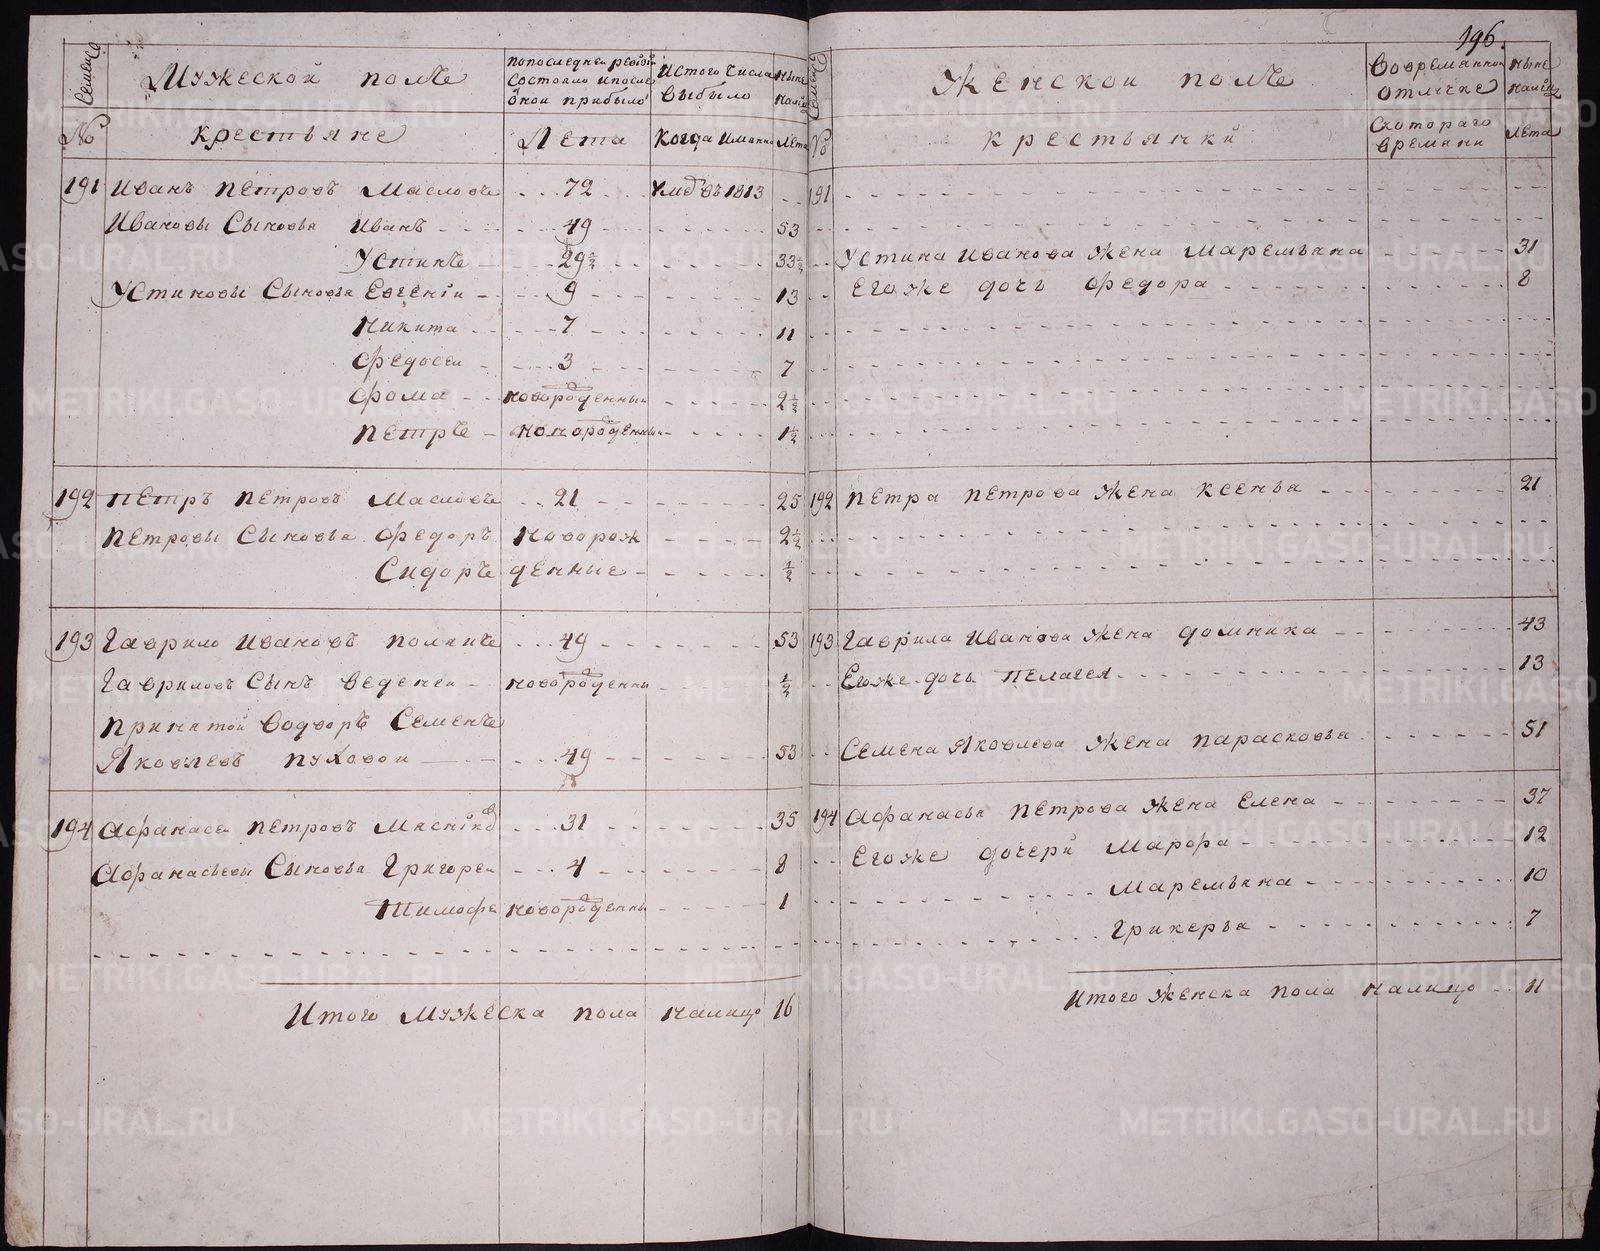 196.
Семейсо
Мужеской полъ
попоследней ревизіи
состояло и после
оной прибыло
Истого числа
выбыло
ныне
налицо
№
крестьяне
Лета
Когда имянно
Лета
191 Иванъ Петровъ Масловъ 72 Умѣ въ 1813
Ивановы Сыновья Иванъ 49 53
Устинъ 29½ 33½
Устиновы Сыновья Евгеніи 9 13
Никита 7 11
Федосеи 3 7
Фома новорожденныи 2½
Петръ новорожденныи 1½
192 Петръ Петровъ Масловъ 21 25
Петровы Сыновья Федоръ Новорож 2½
Сидоръ денные ½
193 Гаврило Ивановъ 49 53
Гавриловъ Сынъ Веденеи новорожденны ½
Принятои Водворъ Семенъ
Яковлевъ Пуховои 49 53
194 Афанасеи Петровъ 31 35
Афанасьевы Сыновья Григореи 4 8
Тимофе новорожденны 1
Итого Мужеска пола налицо 16
Женской полъ
Вовременной
отлучке
ныне
налицо
№
крестьянки
Скотораго
времяни
лета
191
Устина Иванова жена Маремьяна 31
Егоже дочь Федора 8
192 Петра Петрова жена Ксенья 21
193 Гаврила Иванова жена Домника 43
Егоже дочь Пелагея 13
Семена Яковлева жена Парасковья 51
194 Афанасья Петрова жена Елена 37
Егоже дочери Марфа 12
Маремьяна 10
Грикерья 7
Итого Женска пола налицо 11
METRIKI.GASO-URAL.RU